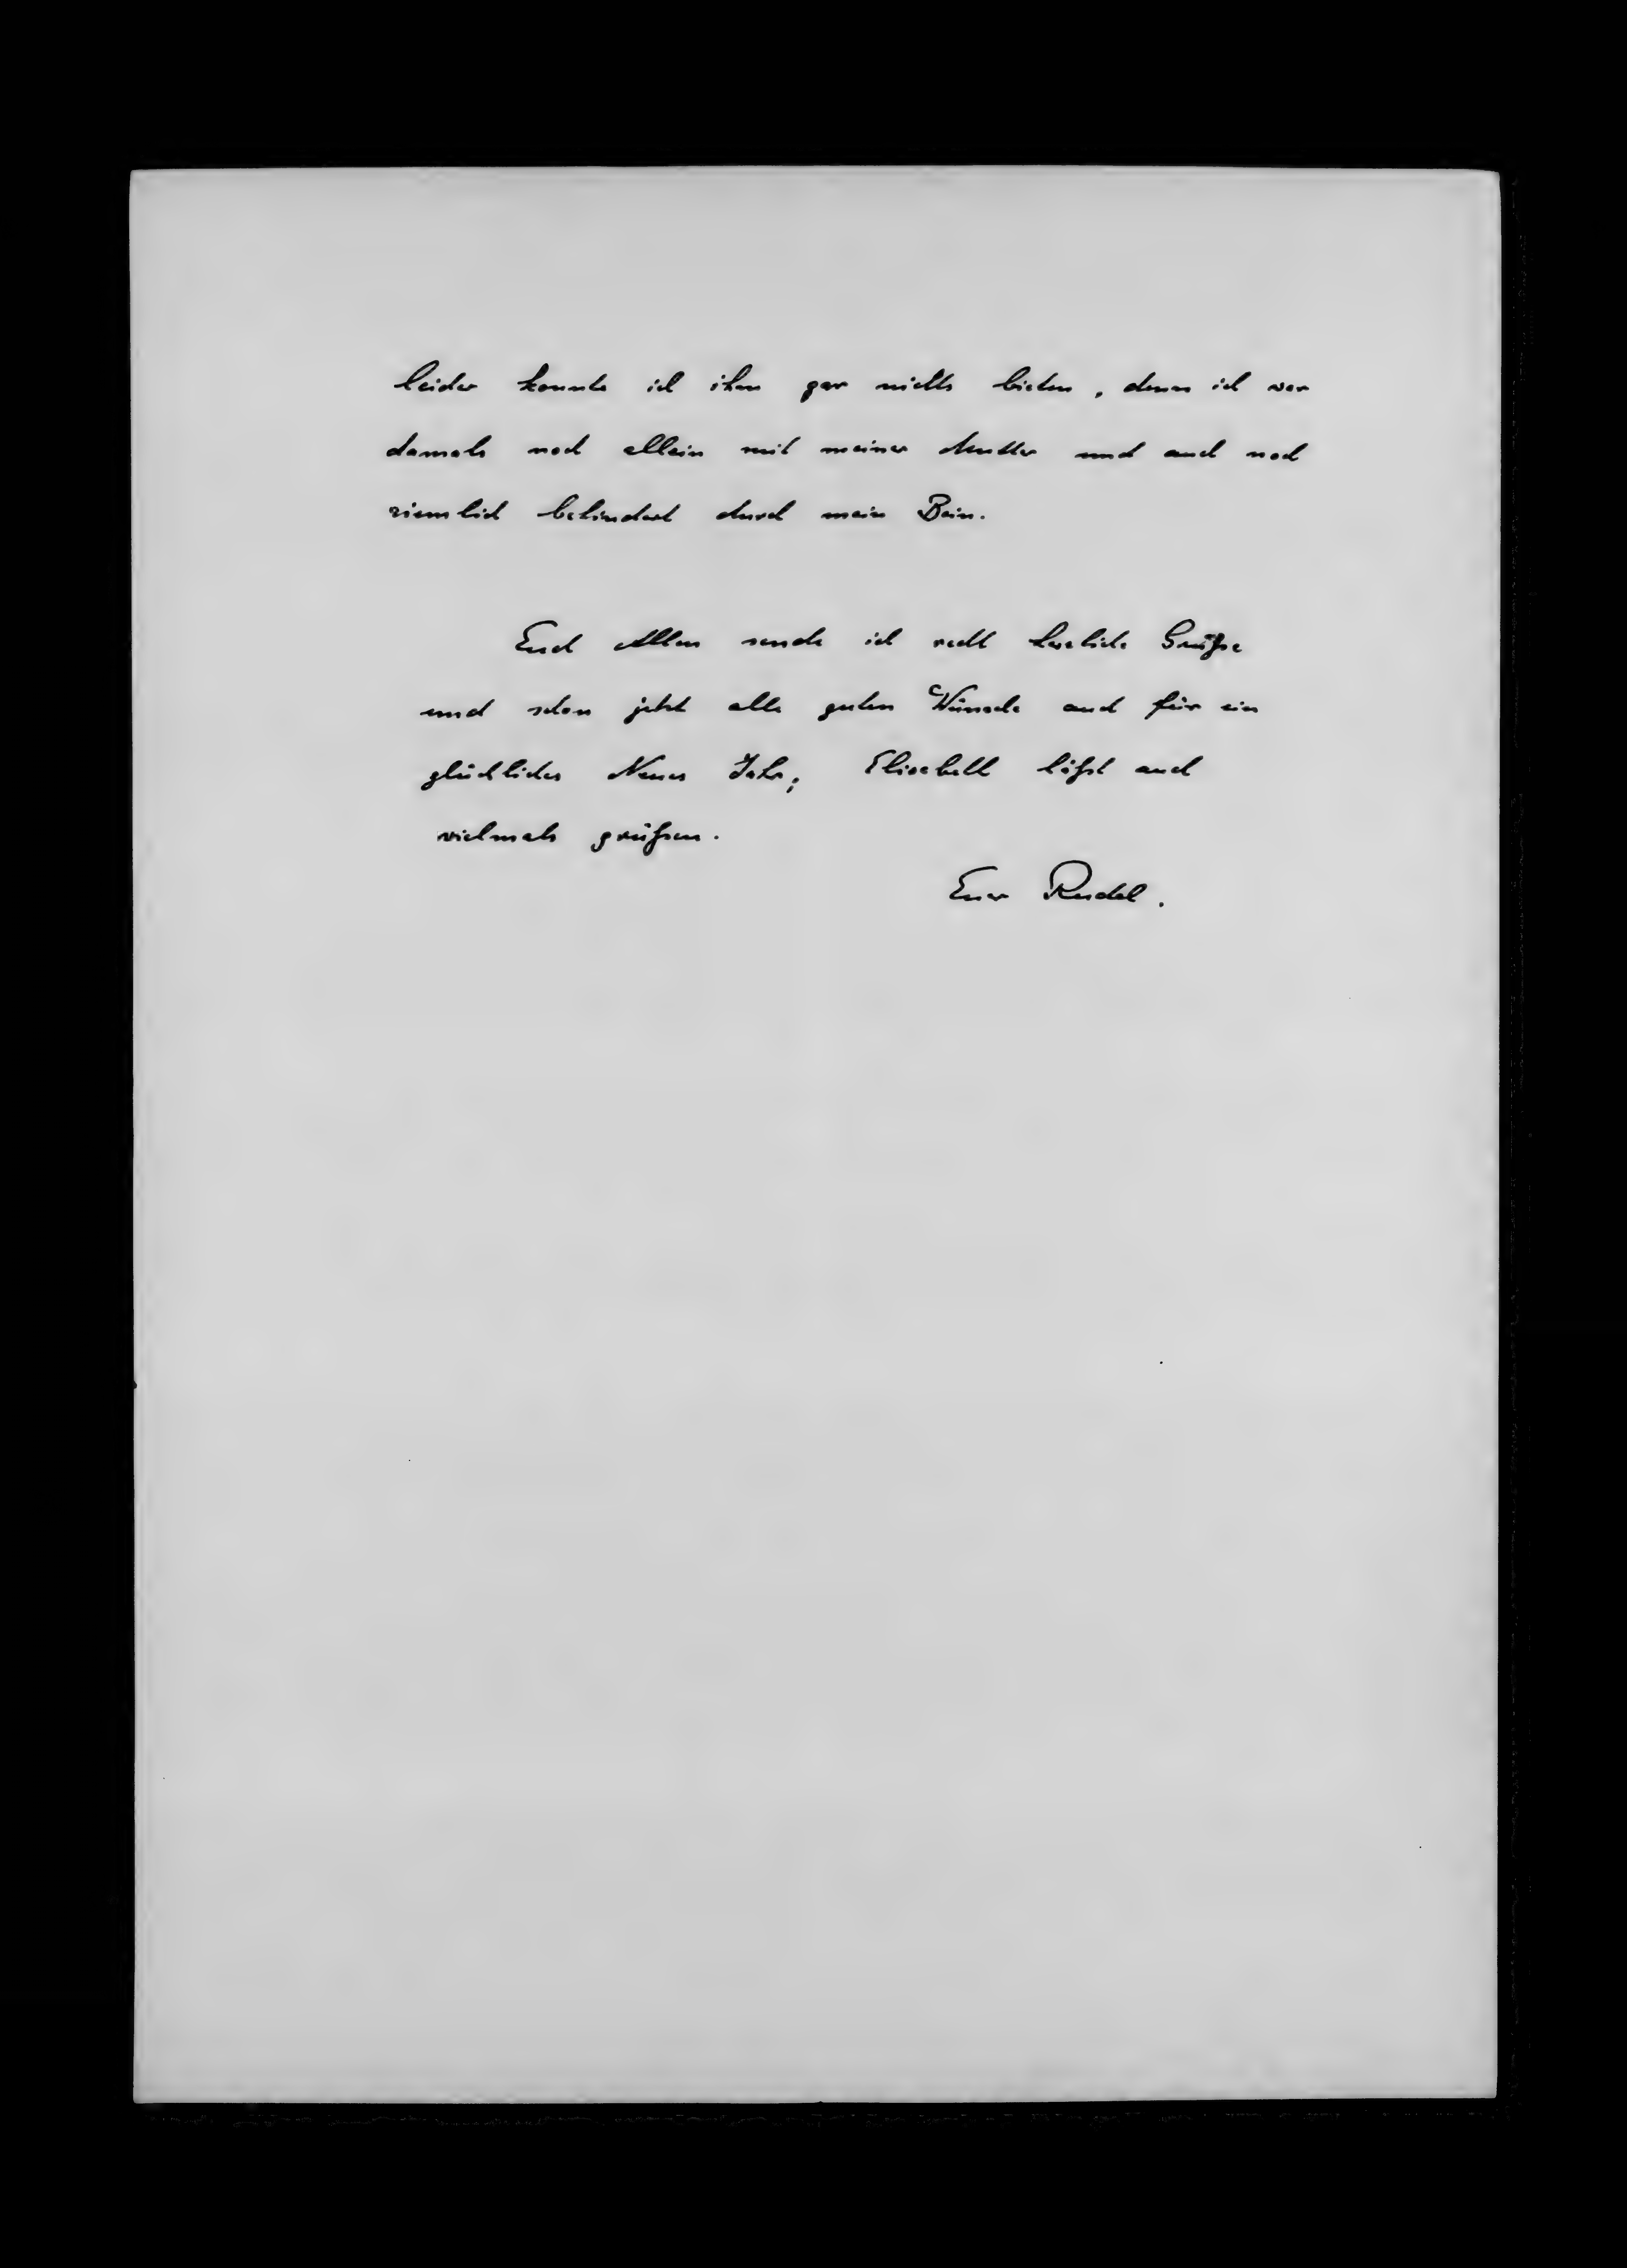 leider konnte ich ihm gar nichts bieten, denn ich war
damals noch allein mit meiner Mutter und auch noch
ziemlich behindert durch mein Bein.
Euch Allen sende ich recht herzliche Grüße
und schon jetzt alle guten Wünsche auch für ein
glückliches Neues Jahr; Elisabeth läßt auch
vielmals grüßen.
Euer Rudel.